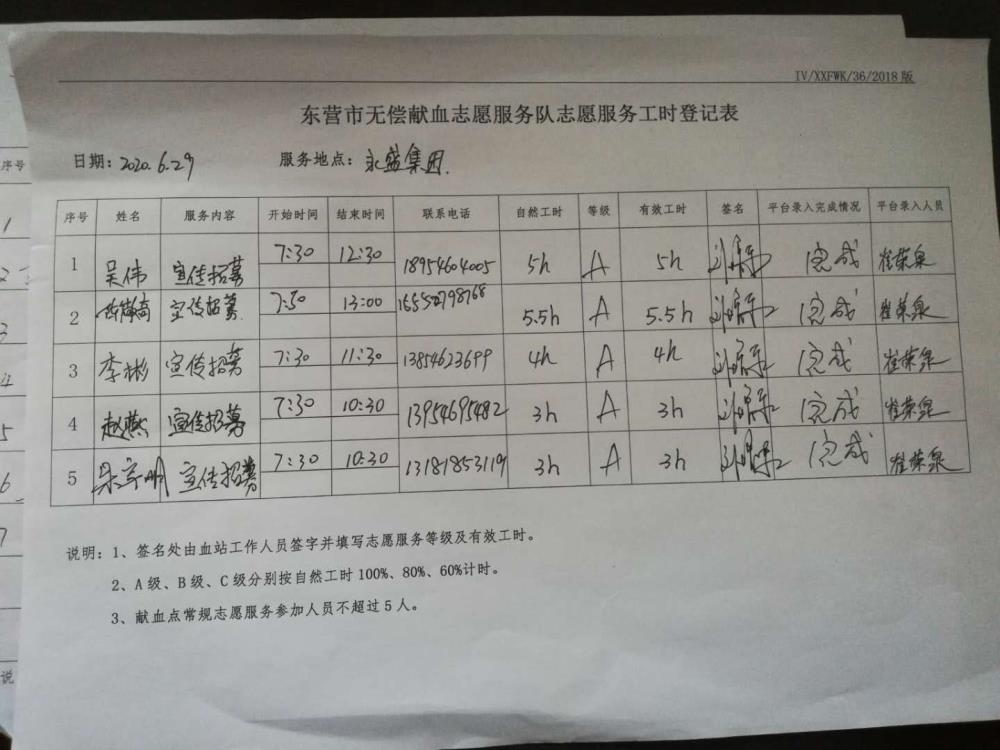 IV/XXFWK/36/2018版
东营市无偿献血志愿服务队志愿服务工时登记表
日期：2020.6.29 服务地点：永盛集团.
序号 姓名 服务内容 开始时间 结束时间 联系电话 自然工时 等级 有效工时 签名 平台录入完成情况 平台录入人员
1 吴伟 宣传招募 7:30 12:30 18954604005 5h A 5h 完成 崔荣泉
2 宣传招募 7:30 13:00 5.5h A 5.5h 完成 崔荣泉
3 李彬 宣传招募 7:30 11:30 13854623699 4h A 4h 完成 崔荣泉
4 赵燕 宣传招募 7:30 10:30 13954695482 3h A 3h 完成 崔荣泉
5 宣传招募 7:30 10:30 13181853119 3h A 3h 完成 崔荣泉
说明：1、签名处由血站工作人员签字并填写志愿服务等级及有效工时。
2、A级、B级、C级分别按自然工时100%、80%、60%计时。
3、献血点常规志愿服务参加人员不超过5人。
序号
1
2
3
4
5
6
7
说